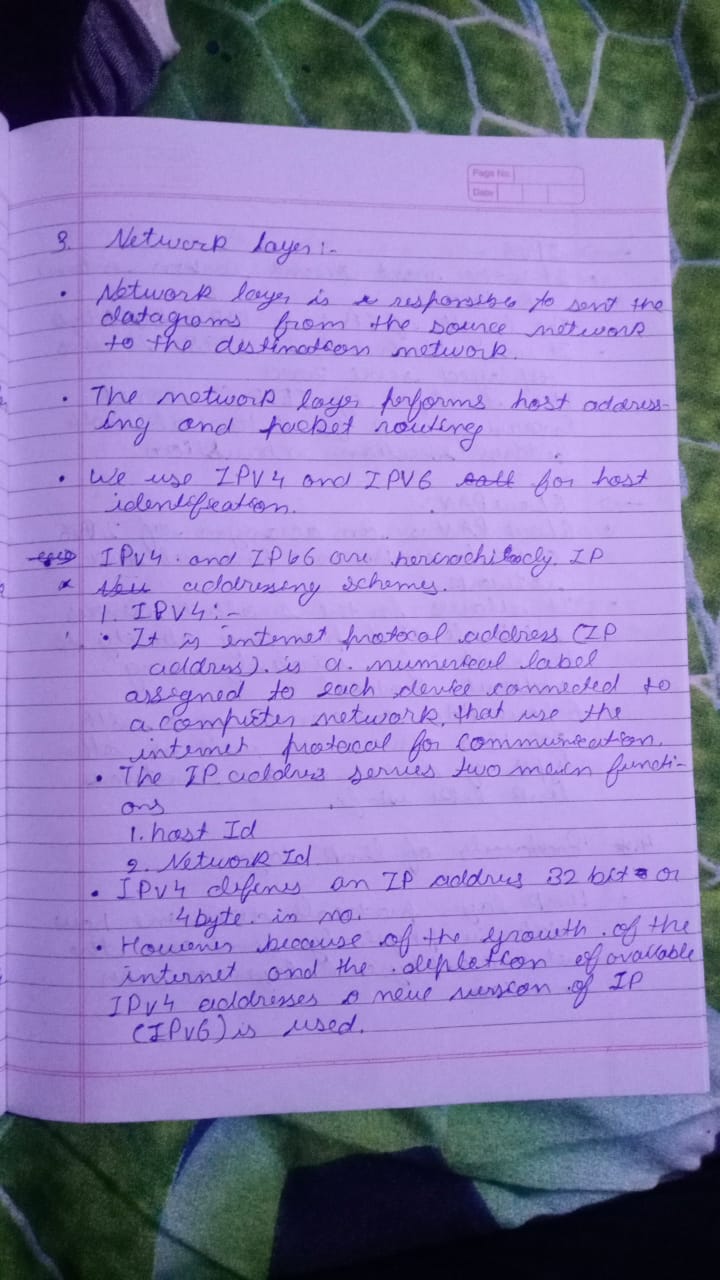 Page No.
Date
3. Network layer :-
• Network layer is responsible to sent the
datagrams from the source network
to the destination network.
• The network layer performs host address-
ing and packet routing
• We use IPV4 and IPV6 for host
identification.
IPv4 and IPv6 are IP
* addressing schemes.
1. IPV4 :-
• It is internet protocol address (IP
address). is a numerical label
assigned to each device connected to
a computer network, that use the
internet protocol for communication.
• The IP address serves two main functi-
ons
1. host Id
2. Network Id
• IPv4 defines an IP address 32 bit or
4 byte. in no.
• However because of the growth of the
internet and the depletion of available
IPv4 addresses a new version of IP
(IPv6) is used.